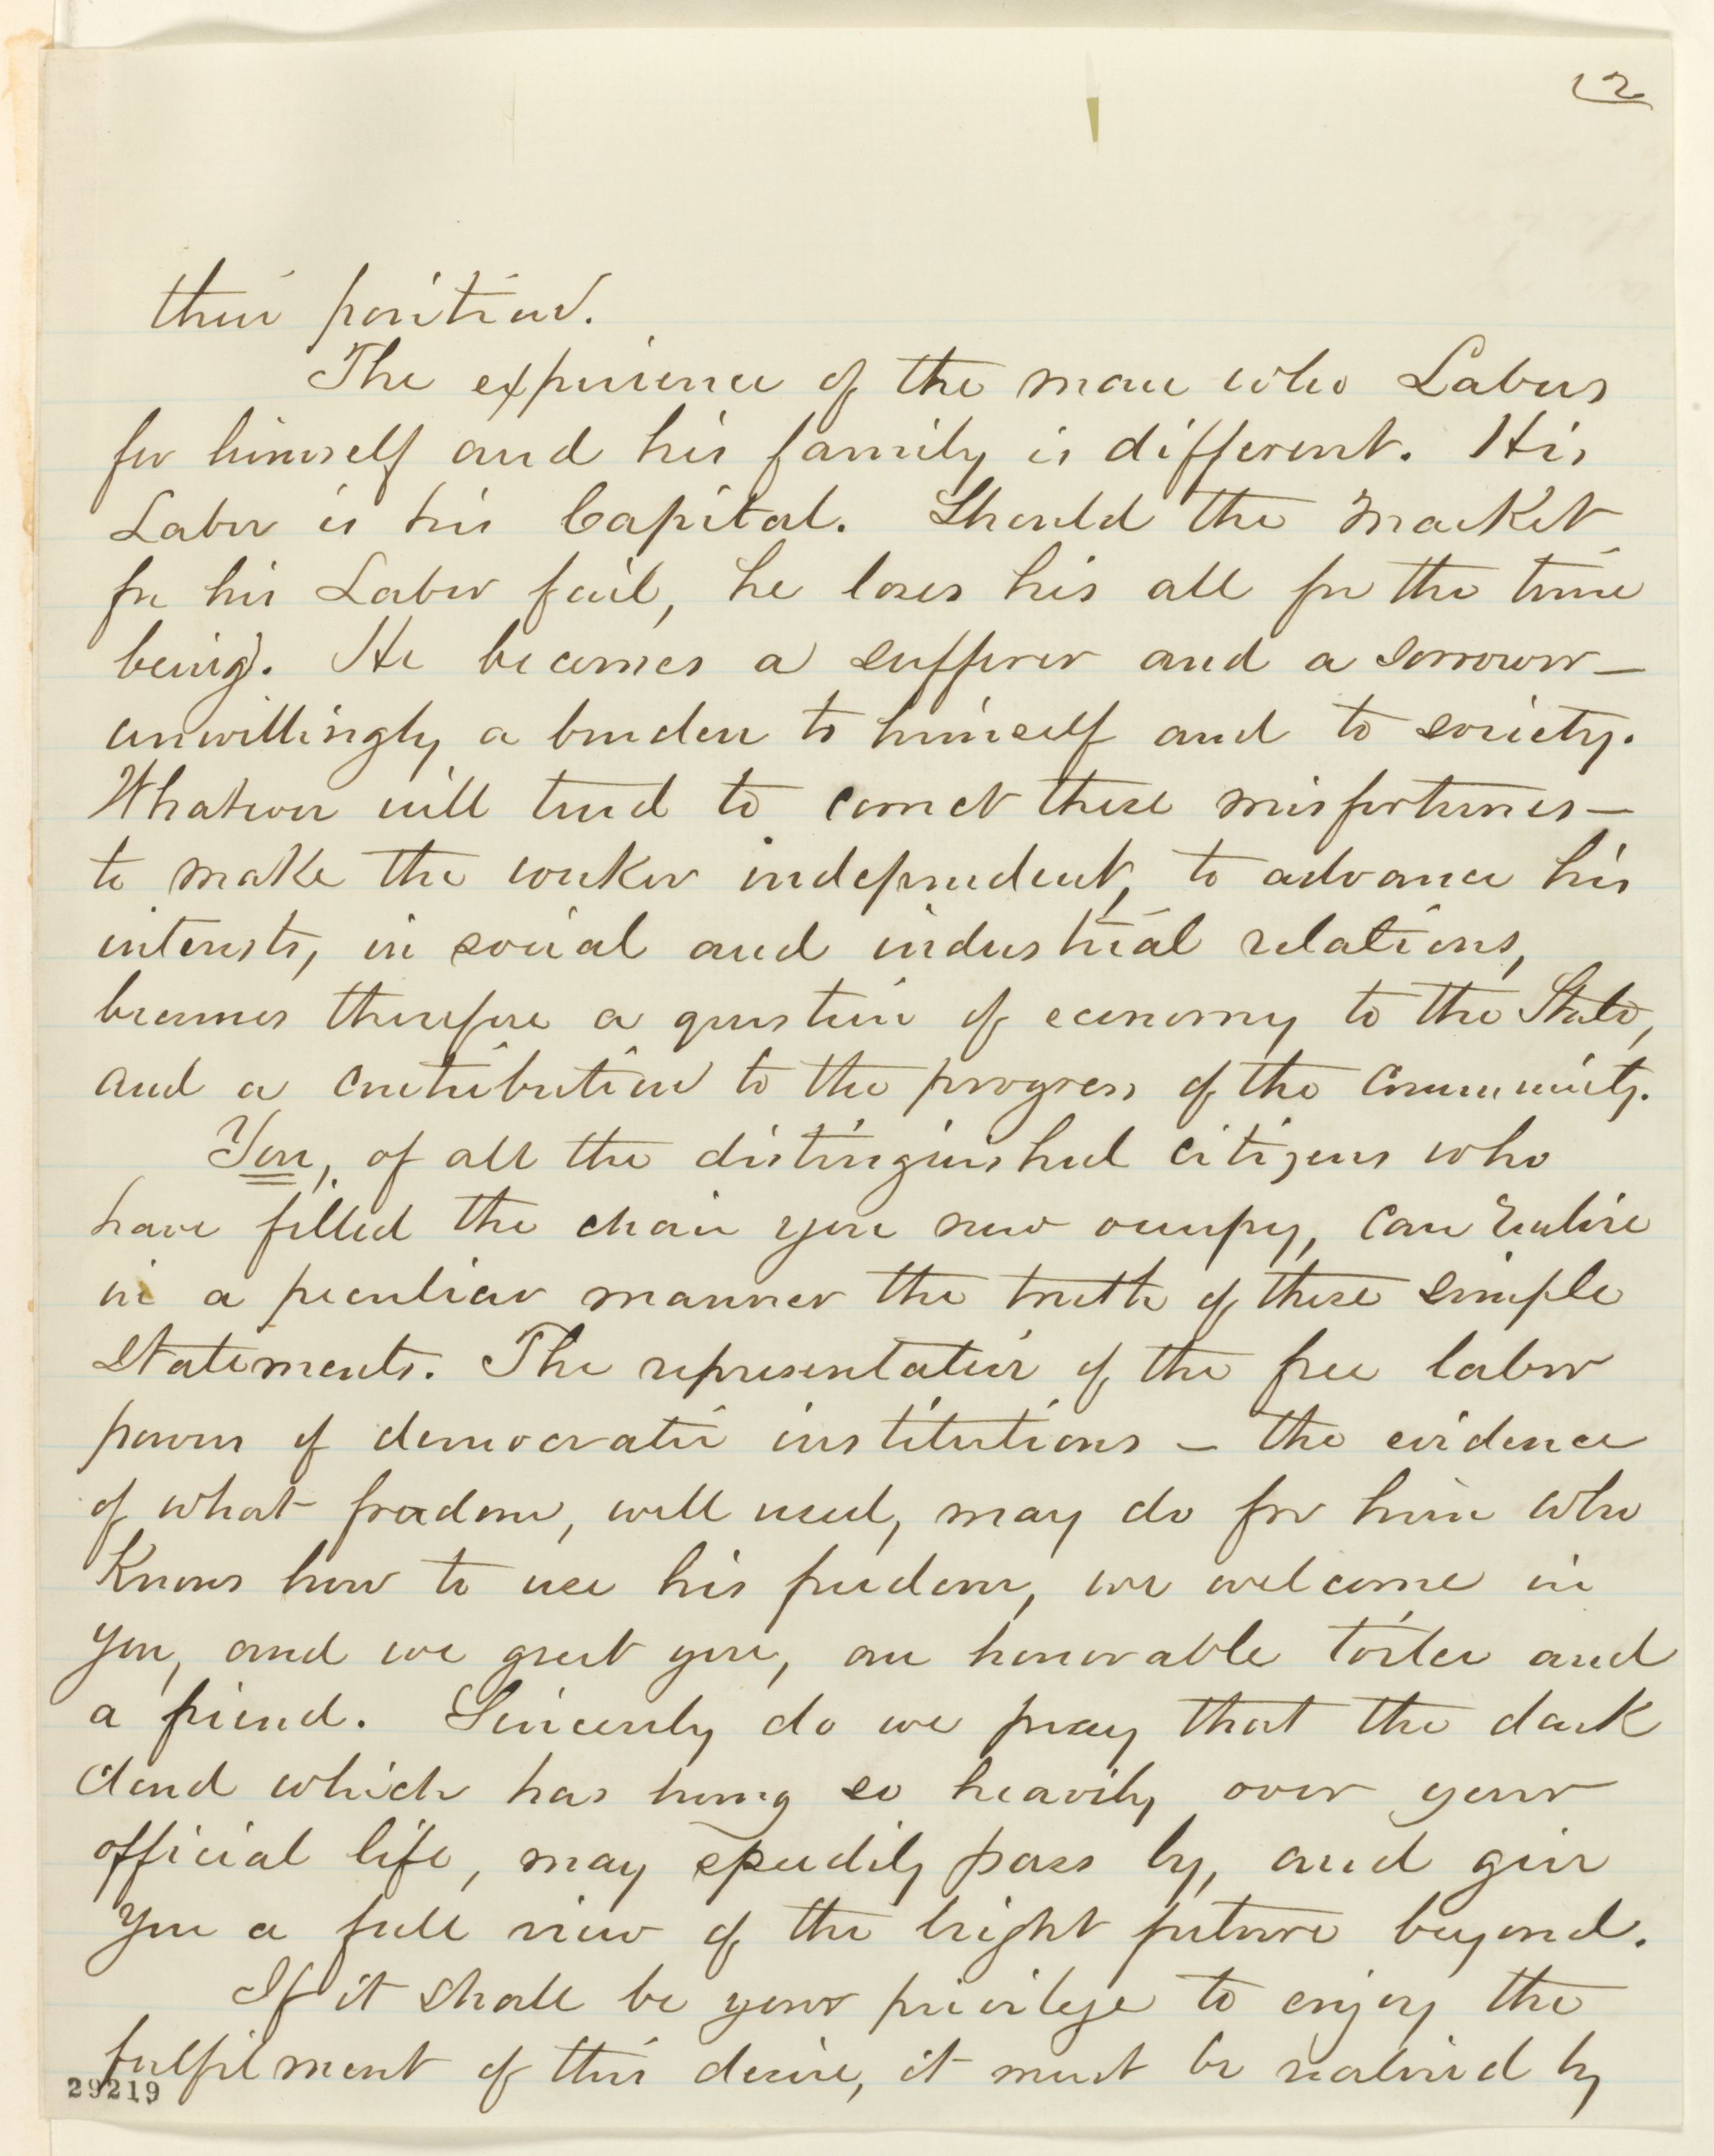 12
their position.
The experience of the man who Labors
for himself and his family is different. His
Labor is his Capital. Should the Market
for his Labor fail, he loses his all for the time
being. He becomes a sufferer and a sorrower—
unwillingly a burden to himself and to society.
Whatever will tend to correct these misfortunes—
to make the worker independent, to advance his
interests, in social and industrial relations,
becomes therefore a question of economy to the State,
and a contribution to the progress of the Community.
You, of all the distinguished citizens who
have filled the chair you now occupy, can realise
in a peculiar manner the truth of these simple
Statements. The representative of the free labor
power of democratic institutions — the evidence
of what freedom, well used, may do for him who
Knows how to use his freedom, we welcome in
you, and we greet you, an honorable toiler and
a friend. Sincerely do we pray that the dark
cloud which has hung so heavily over your
official life, may speedily pass by, and give
you a full view of the bright future beyond.
If it shall be your privilege to enjoy the
fulfilment of this desire, it must be realised by
29219